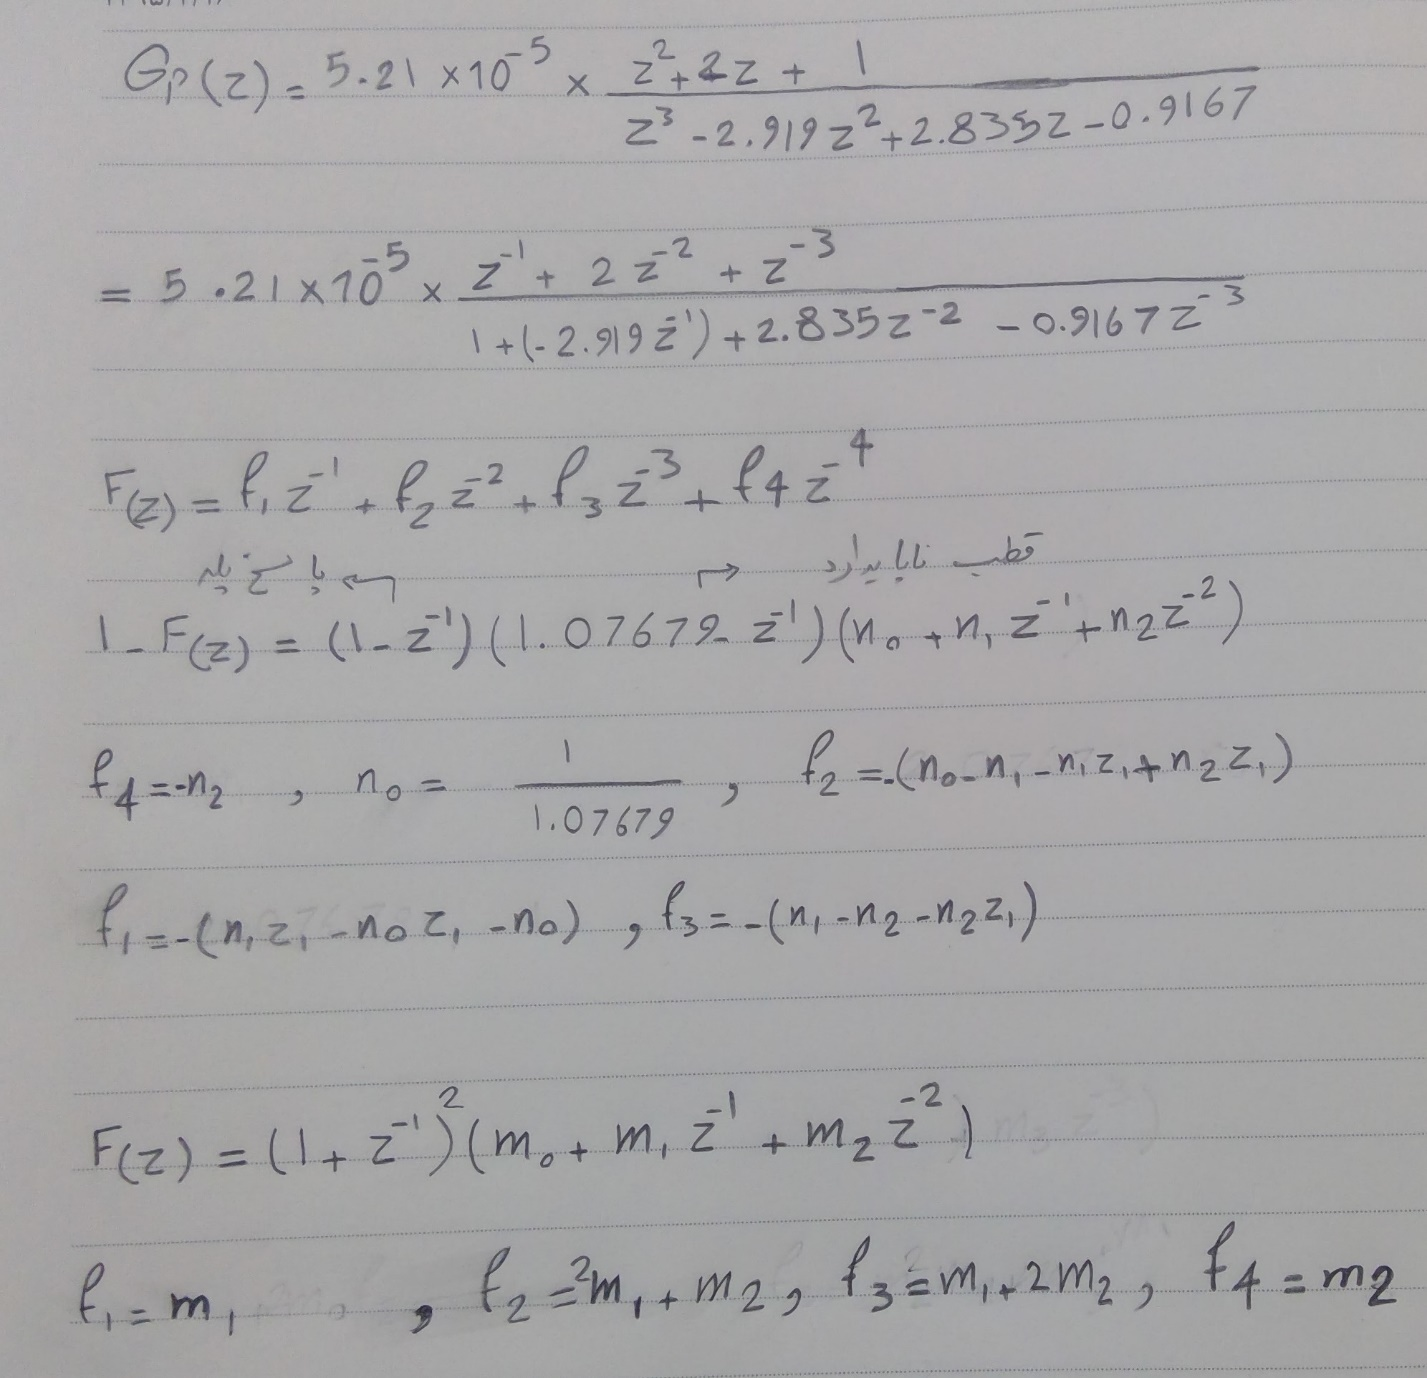 Gp(z) = 5.21 ×10^-5 × (z^2 + 2z + 1) / (z^3 - 2.919z^2 + 2.835z - 0.9167)
= 5.21×10^-5 × (z^-1 + 2z^-2 + z^-3) / (1 + (-2.919z^-1) + 2.835z^-2 - 0.9167z^-3)
F(z) = f1 z^-1 + f2 z^-2 + f3 z^-3 + f4 z^-4
پاسخ پله ← → قطب ناپایدار
1 - F(z) = (1 - z^-1)(1.07679 - z^-1)(n0 + n1 z^-1 + n2 z^-2)
f4 = -n2 , n0 = 1 / 1.07679 , f2 = -(n0 - n1 - n1z1 + n2z1)
f1 = -(n1z1 - n0z1 - n0) , f3 = -(n1 - n2 - n2z1)
F(z) = (1 + z^-1)^2 (m0 + m1 z^-1 + m2 z^-2)
f1 = m1 , f2 = 2m1 + m2 , f3 = m1 + 2m2 , f4 = m2